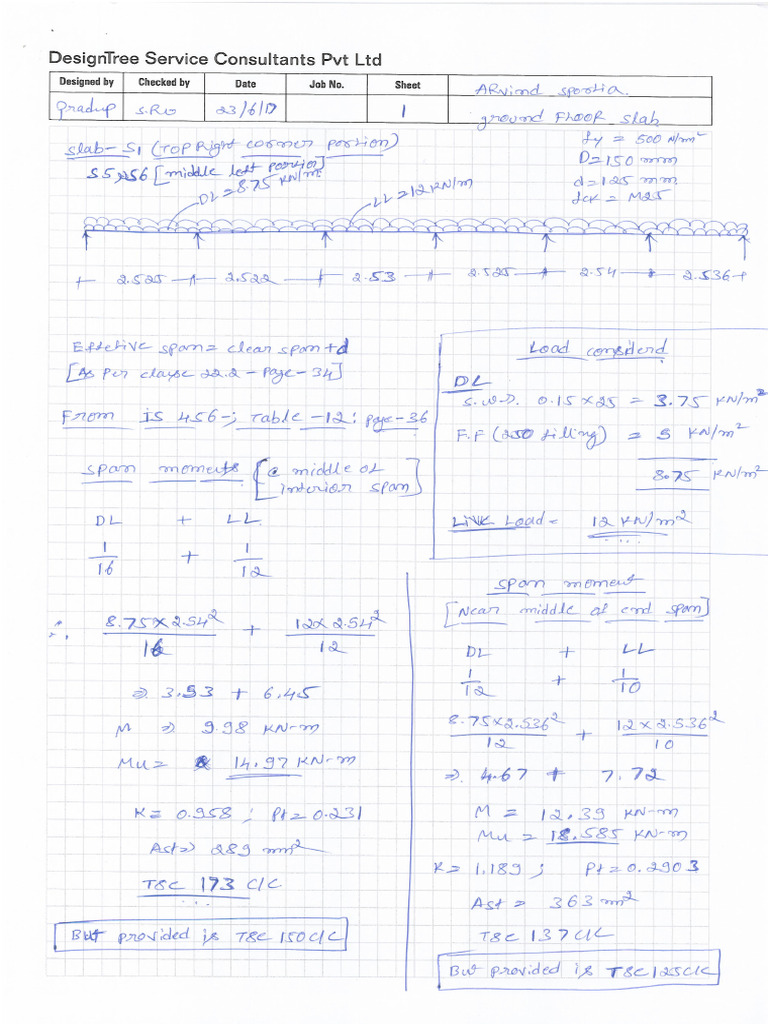 DesignTree Service Consultants Pvt Ltd
Designed by Checked by Date Job No. Sheet
Pradeep S.RO 23/6/17 1
Arvind sportia.
ground FLOOR slab
fy = 500 N/m²
D=150 mm
d=125 mm.
fck = M25
Slab-S1 (TOP Right corner portion)
S5,S6 [middle left portion]
DL=8.75 KN/m. LL=12KN/m
2.525 2.522 2.53 2.525 2.54 2.536
Effetive span = clear span +d
[As Per clayse 22.2 - Page-34]
From IS 456-; Table -12: page-36
Span moments [@ middle of
interior span]
DL + LL
1/16 + 1/12
∴ 8.75×2.54²/16 + 12×2.54²/12
⇒ 3.53 + 6.45
M ⇒ 9.98 KN-m
Mu = 14.97 KN-m
K= 0.958 ; Pt= 0.231
Ast⇒ 289 mm²
T8C 173 C/C
But provided is T8C 150C/C
Load considerd
DL
S.W⇒. 0.15×25 = 3.75 KN/m²
F.F (250 filling) = 5 KN/m²
8.75 KN/m²
Live Load = 12 KN/m²
Span moment
[Near middle of end span]
DL + LL
1/12 + 1/10
8.75×2.536²/12 + 12×2.536²/10
⇒ 4.67 + 7.72
M = 12.39 KN-m
Mu = 18.585 KN-m
K= 1.189 ; Pt=0.2903
Ast = 363 mm²
T8C 137C/C
But provided is T8C125C/C